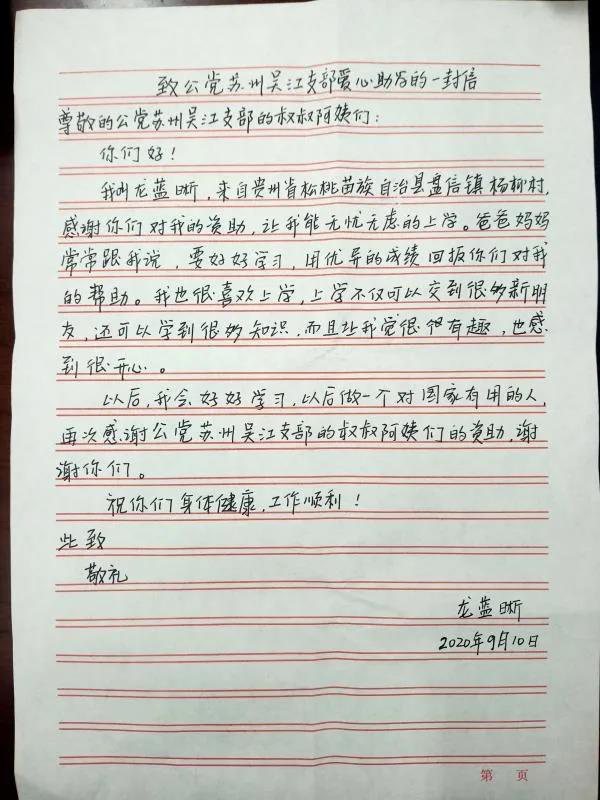 致公党苏州吴江支部爱心助学的一封信
尊敬的公党苏州吴江支部的叔叔阿姨们:
你们好!
我叫龙蓝晰,来自贵州省松桃苗族自治县盘信镇杨柳村,
感谢你们对我的资助,让我能无忧无虑的上学。爸爸妈妈
常常跟我说,要好好学习,用优异的成绩回报你们对我
的帮助。我也很喜欢上学,上学不仅可以交到很多新朋
友,还可以学到很多知识,而且让我觉很很有趣,也感
到很开心。
以后,我会好好学习,以后做一个对国家有用的人,
再次感谢公党苏州吴江支部的叔叔阿姨们的资助,谢
谢你们。
祝你们身体健康,工作顺利!
此致
敬礼
龙蓝晰
2020年9月10日
第 页